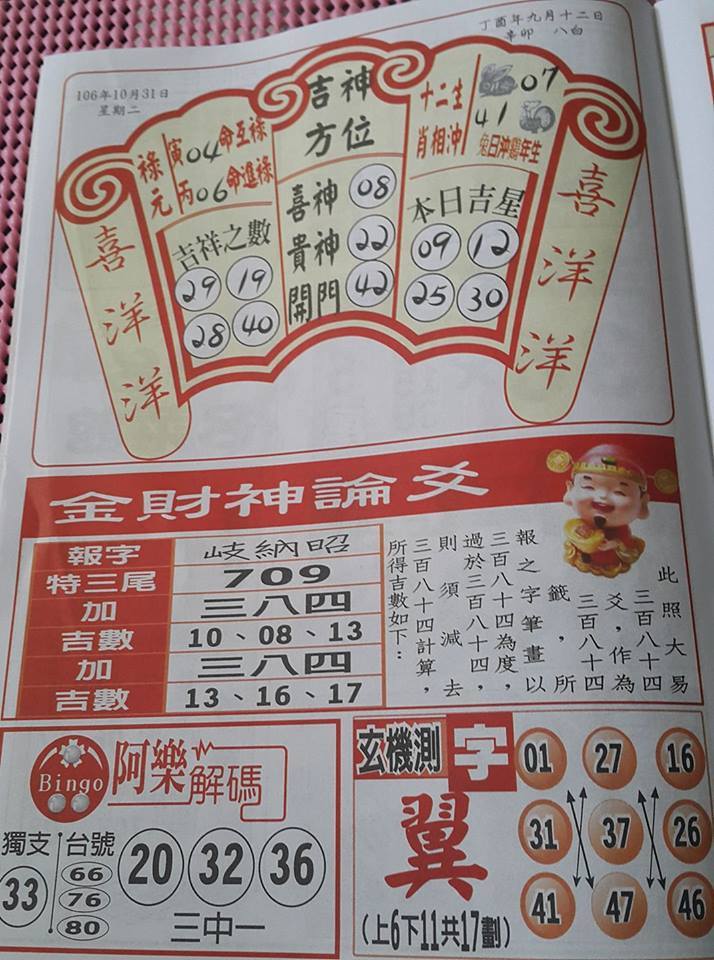 丁酉年九月十二日
辛卯 八白
106年10月31日
星期二
祿元
寅04命互祿
丙06命進祿
吉神方位
十二生肖相沖
07
41
兔日沖鷄年生
喜洋洋
吉祥之數
29 19
28 40
喜神 08
貴神 22
開門 42
本日吉星
09 12
25 30
喜洋洋
金財神論爻
報字 歧納昭
特三尾 709
加 三八四
吉數 10、08、13
加 三八四
吉數 13、16、17
此照大易
三百八十四
爻，作為
三百八十四
籤，所以
報之字筆畫
三百八十四為度，
過於三百八十四，
則須減去
三百八十四計算，
所得吉數如下：
Bingo
阿樂解碼
獨支
33
台號
66
76
80
20 32 36
三中一
玄機測字
翼
(上6下11共17劃)
01 27 16
31 37 26
41 47 46